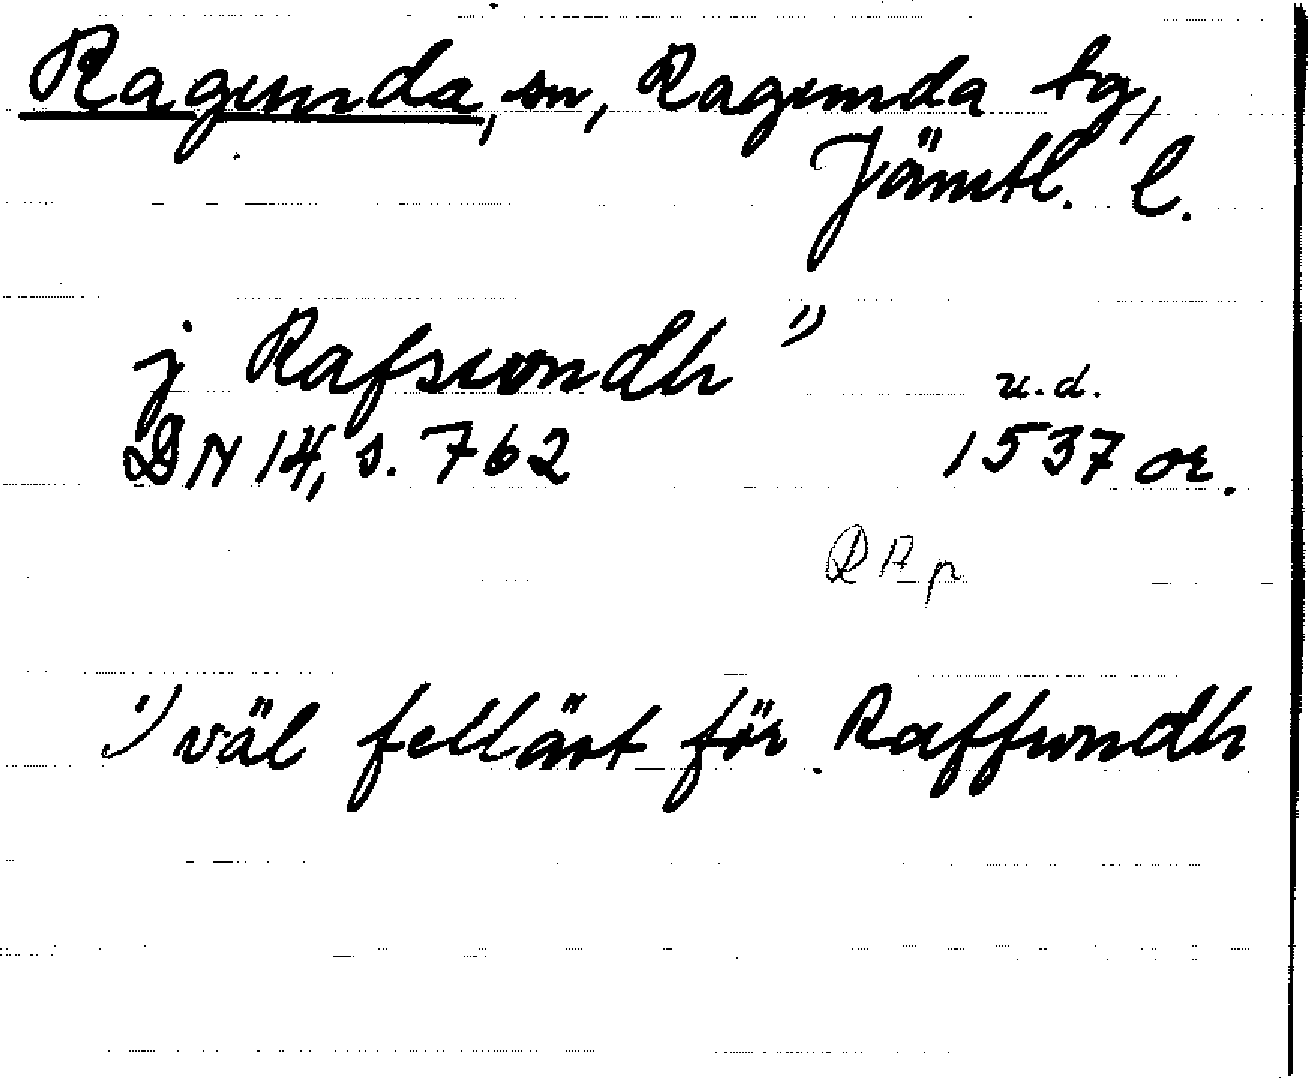 Ragunda, sn, Ragunda tg,
Jämtl. l.
j Rafswndh 1)
u.d.
DN 14, s. 762 1537 or.
RAp
1) väl felläst för Raffwndh